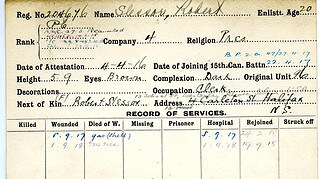 Reg. No. 204676 Name Slessor, Robert Enlistt. Age 20
Rank Pte Company 4 Religion Pres.
B.P.2.0.
Date of Attestation 4-4-16 Date of Joining 15th. Can. Battn 22.4.17
Height 5.9 Eyes Brown Complexion Dark Original Unit
Decorations Occupation Clerk
Next of Kin (F) Robert Slessor Address 4 Carleton St Halifax
N.S.
RECORD OF SERVICES.
Killed Wounded Died of W. Missing Prisoner Hospital Rejoined Struck off
5.9.17 gas (shell) 5.9.17
1.9.18 1.9.18